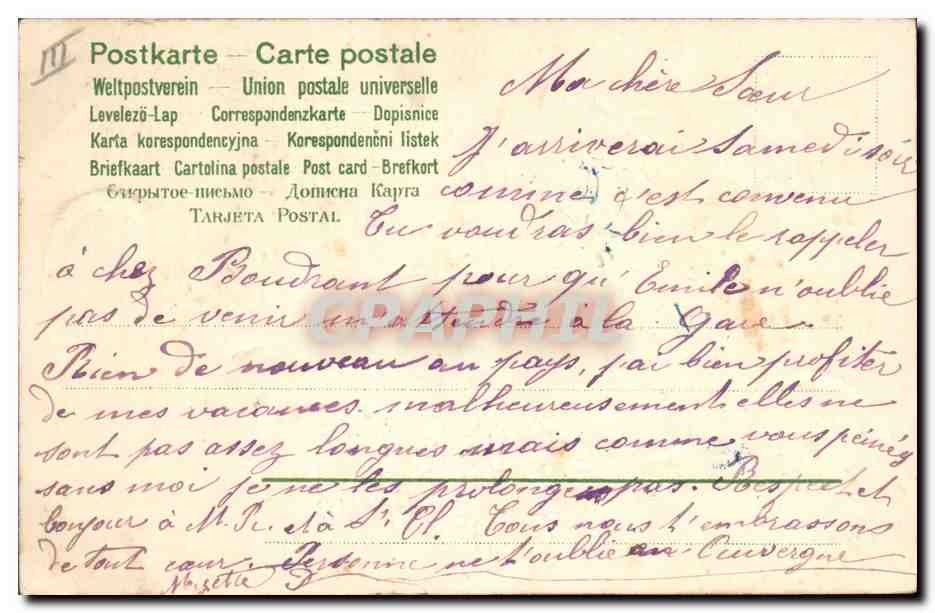 III
Postkarte — Carte postale
Weltpostverein — Union postale universelle
Levelező-Lap Correspondenzkarte Dopisnice
Karta korespondencyjna — Korespondenčni listek
Briefkaart Cartolina postale Post card - Brefkort
Открытое-письмо — Дописна Карта
TARJETA POSTAL
Ma chère Sœur
J'arriverai Samedi soir
comme c'est convenu
Tu voudras bien le rappeler
à chez Boudrant pour qu'Emile n'oublie
pas de venir m'attendre à la gare.
Rien de nouveau au pays, pas bien profiter
de mes vacances malheureusement elles ne
sont pas assez longues mais comme vous peinés
sans moi je ne les prolonge pas. Respect et
bonjour à Mr. R. et à St. Cl. Tous nous t'embrassons
de tout cœur. Personne ne t'oublie en Auvergne
CPAPHIL